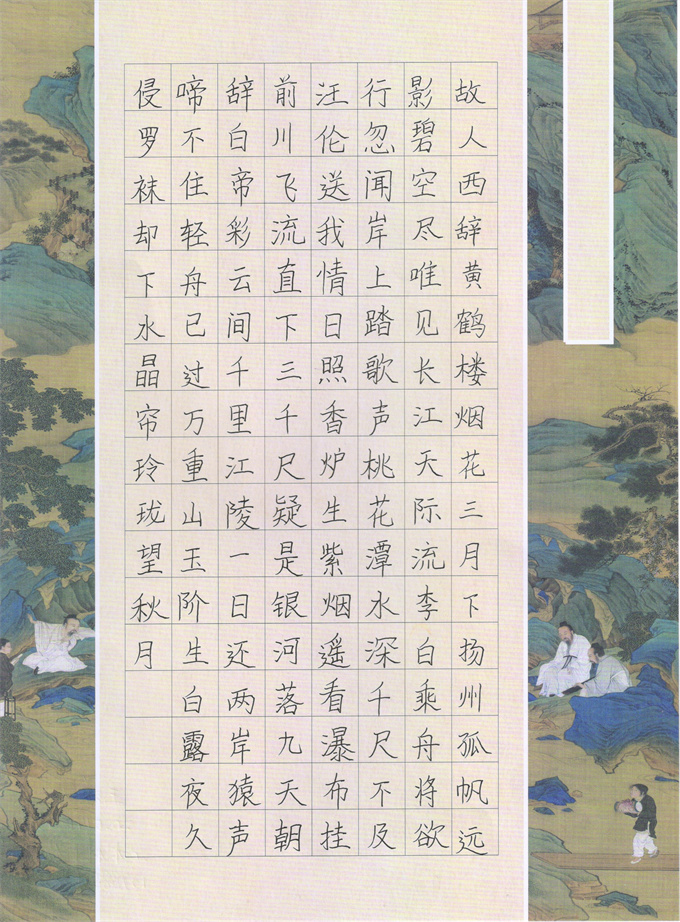 故人西辞黄鹤楼烟花三月下扬州孤帆远
影碧空尽唯见长江天际流李白乘舟将欲
行忽闻岸上踏歌声桃花潭水深千尺不及
汪伦送我情日照香炉生紫烟遥看瀑布挂
前川飞流直下三千尺疑是银河落九天朝
辞白帝彩云间千里江陵一日还两岸猿声
啼不住轻舟已过万重山玉阶生白露夜久
侵罗袜却下水晶帘玲珑望秋月